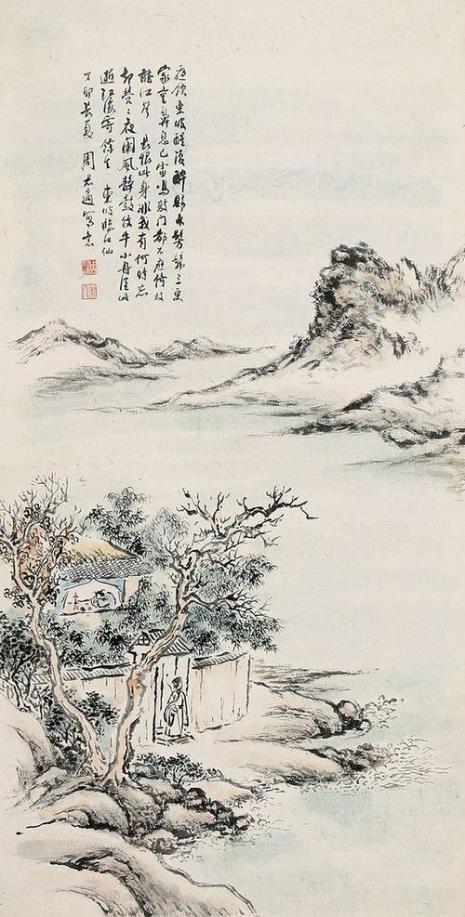 夜飲東坡醒復醉歸來髣髴三更
家童鼻息已雷鳴敲門都不應倚杖
聽江聲 長恨此身非我有何時忘
却營々夜闌風靜縠紋平小舟從此
逝江海寄餘生 東坡臨江仙
丁卯長夏 周 寫